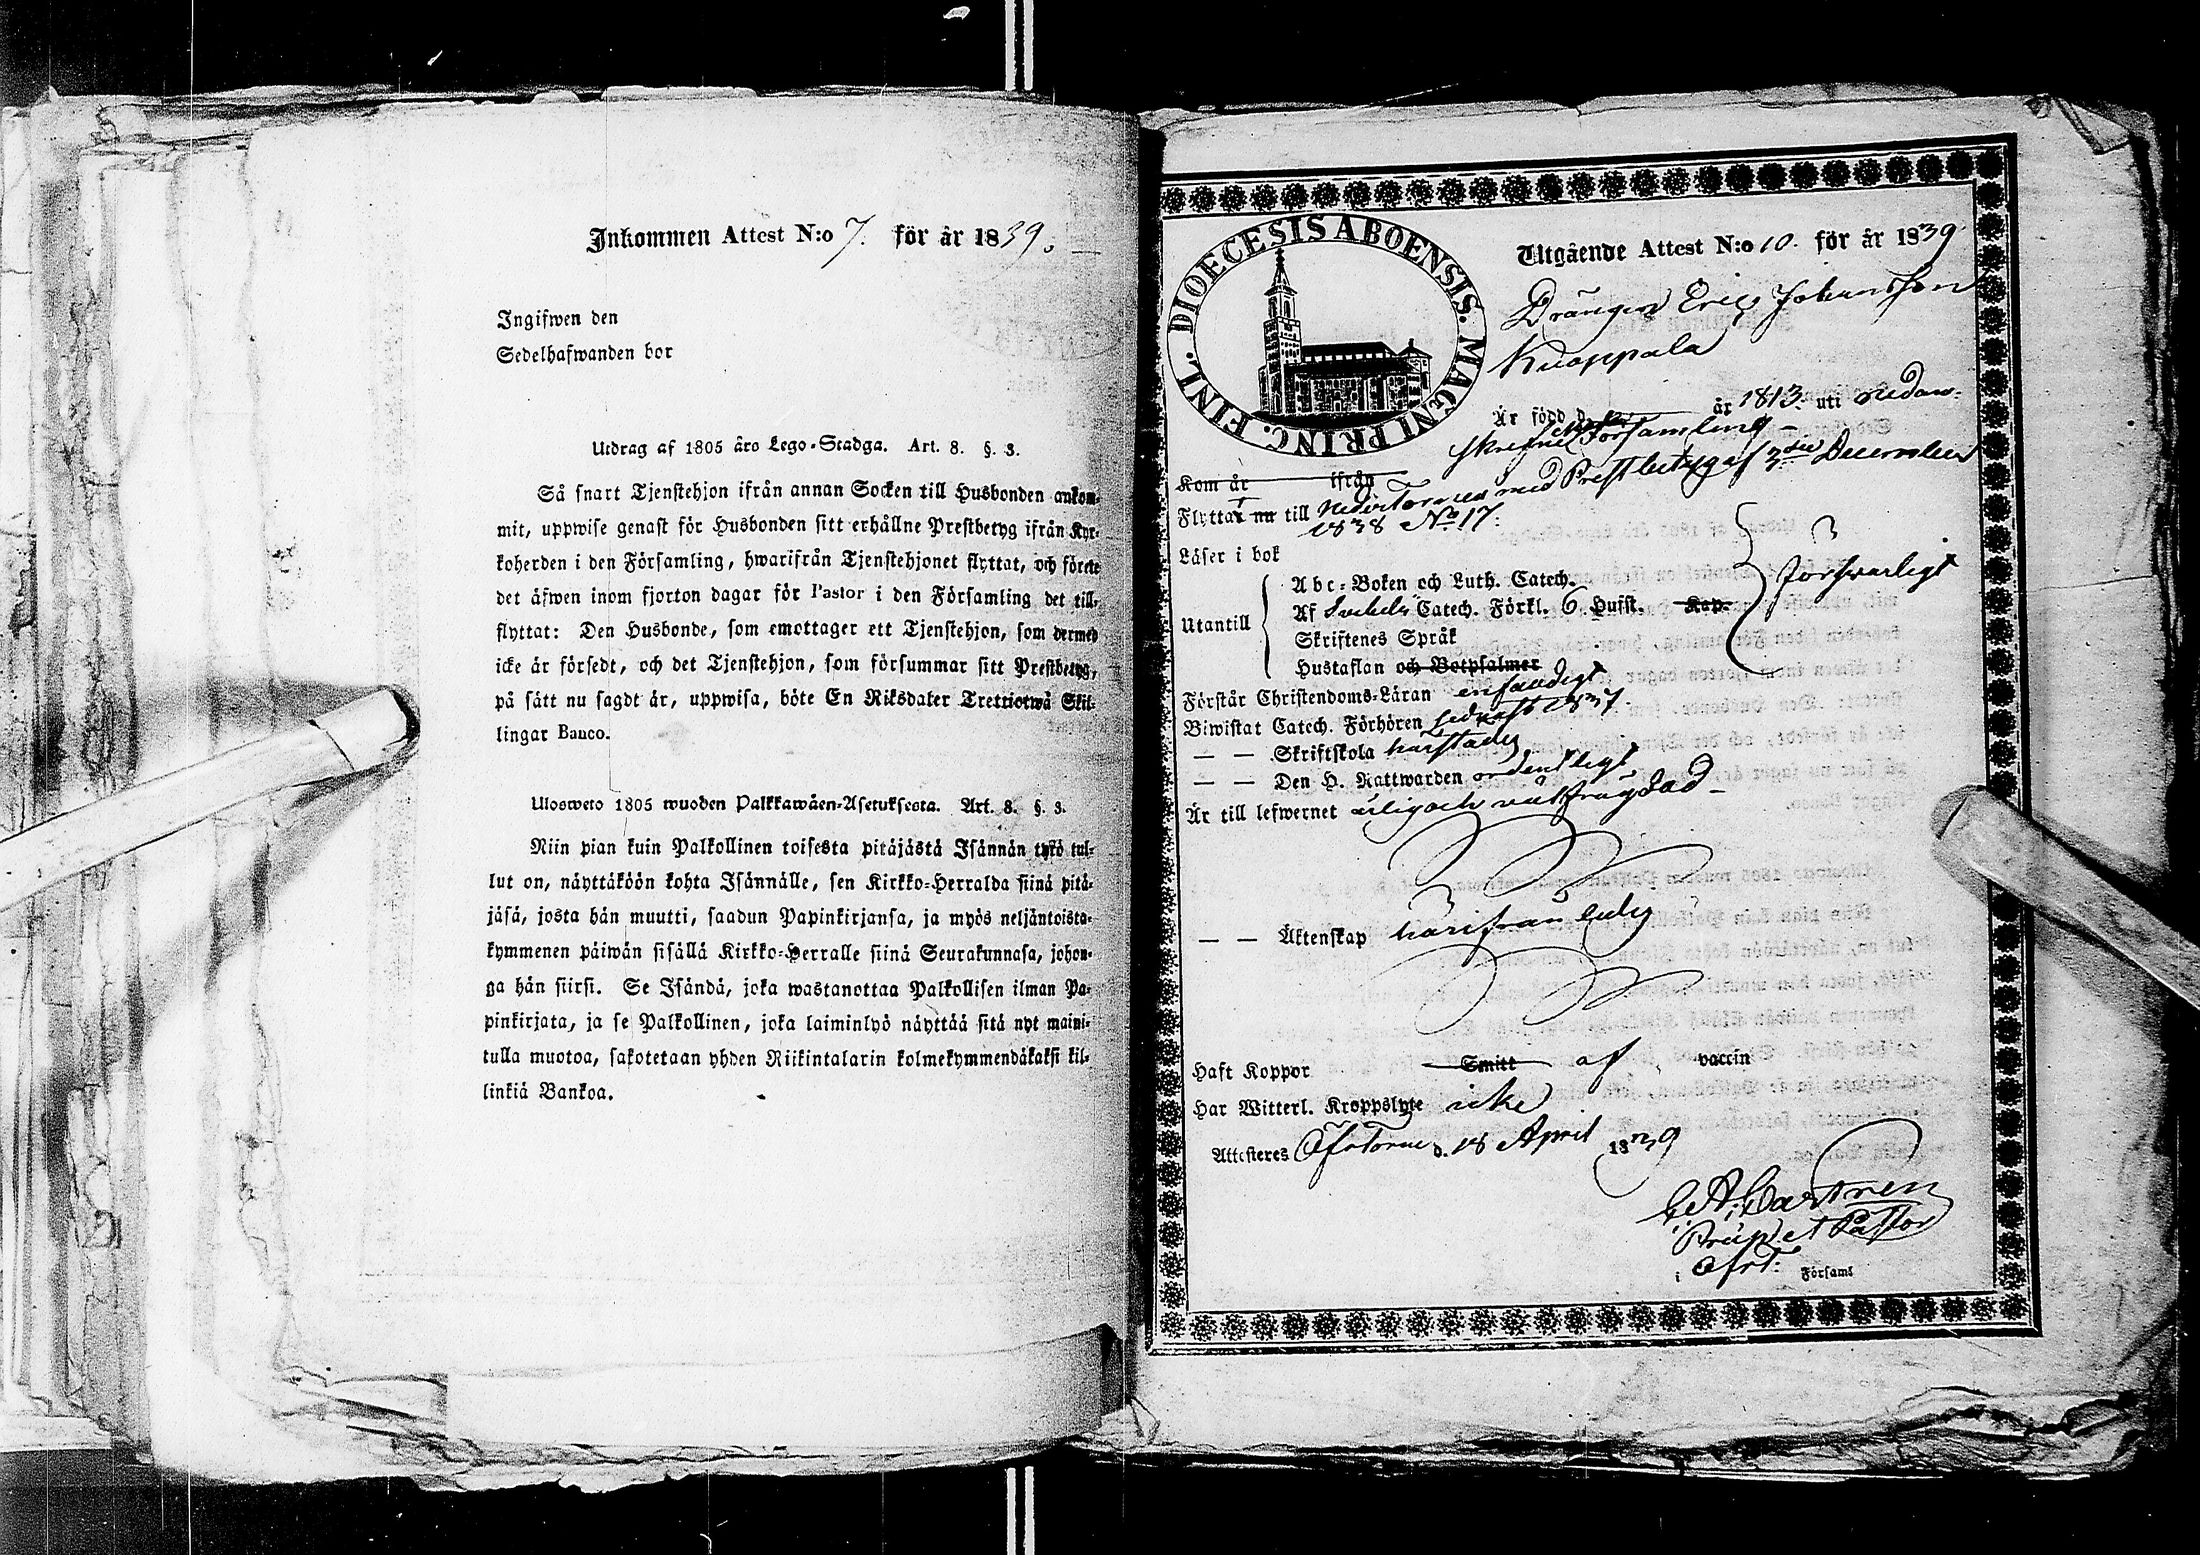 Inkommen Attest N:o 7. för år 1839.
Ingifwen den
Sedelhafwanden bor
Utdrag af 1805 års Lego-Stadga. Art. 8. §. 3.
Så snart Tjenstehjon ifrån annan Socken till Husbonden ankom-
mit, uppwise genast för Husbonden sitt erhållne Prestbetyg ifrån Kyr-
koherden i den Församling, hwarifrån Tjenstehjonet flyttat, och förete
det äfwen inom fjorton dagar för Pastor i den Församling det till-
flyttat: Den Husbonde, som emottager ett Tjenstehjon, som dermed
icke är försedt, och det Tjenstehjon, som försummar sitt Prestbetyg,
på sätt nu sagdt är, uppwisa, böte En Riksdaler Trettiotwå Skil-
lingar Banco.
Ulosweto 1805 wuoden Palkkawäen-Asetuksesta. Art. 8. §. 3.
Niin pian kuin Palkollinen toisesta pitäjästä Isännän tykö tul-
lut on, näyttäköön kohta Isännälle, sen Kirkko-Herralda siinä pitä-
jäsä, josta hän muutti, saadun Papinkirjansa, ja myös neljäntoista-
kymmenen päiwän sisällä Kirkko-Herralle siinä Seurakunnasa, johon-
ga hän siirsi. Se Isändä, joka wastanottaa Palkollisen ilman Pa-
pinkirjata, ja se Palkollinen, joka laiminlyö näyttää sitä nyt maini-
tulla muotoa, sakotetaan yhden Riikintalarin kolmekymmendäkaksi kil-
linkiä Bankoa.
DIOECESIS ABOENSIS. MAGNI PRINC. FINL.
Utgående Attest N:o 10. för år 1839
Drängen Eric Johansson
Kuoppala
Är född d. år 1813. uti nedan-
skrefne Församling
Kom år ifrån
Flyttat nu till Nedertornea med Prestbetyg af 3die December
1838 No 17.
Läser i bok
Utantill
Abc-Boken och Luth. Catech.
Af Catech. Förkl. 6 Hufst. Kap.
Skriftenes Språk
Hustaflan och Botpsalmer
försvarligt
Förstår Christendoms-Läran enfaldigt
Biwistat Catech. Förhören sednast 1837.
— — Skriftskola härstädes
— — Den H. Nattwarden ordentligt
Är till lefwernet ärlig och välfrägdad
— — Äktenskap härifrån ledig
Haft Koppor Smitt af vaccin
Har Witterl. Kroppslyte icke
Attesteres Öfr Torne d. 18 April 1839
C. A. Castren
Præp. et Pastor
i Öfrt. Församl